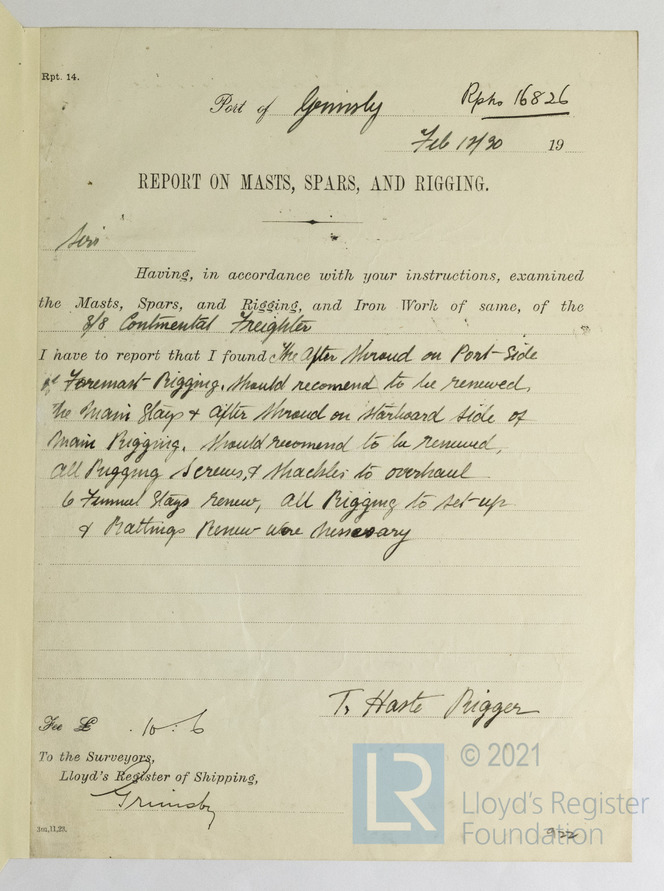 Rpt. 14.
Rpt. No 16826
Port of Grimsby
Feb 12/30 19
REPORT ON MASTS, SPARS, AND RIGGING.
Sirs
Having, in accordance with your instructions, examined
the Masts, Spars, and Rigging, and Iron Work of same, of the
S/S Continental Freighter
I have to report that I found The After Shroud on Port-Side
of Foremast Rigging. Should recomend to be renewed,
The Main Stays & After Shroud on Starboard side of
Main Rigging. Should recomend to be renewed,
All Rigging Screws, & Shackles to overhaul
6 Funnel Stays renew, All Rigging to set-up
& Rattings Renew were Nessesary
T. Haste Rigger
Fee £ . 10 : 6
To the Surveyors,
Lloyd's Register of Shipping,
Grimsby
3m,11,23.
922
LR
© 2021
Lloyd's Register
Foundation